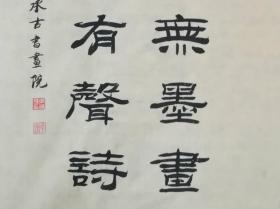 無墨畫
有聲詩
承古書畫院